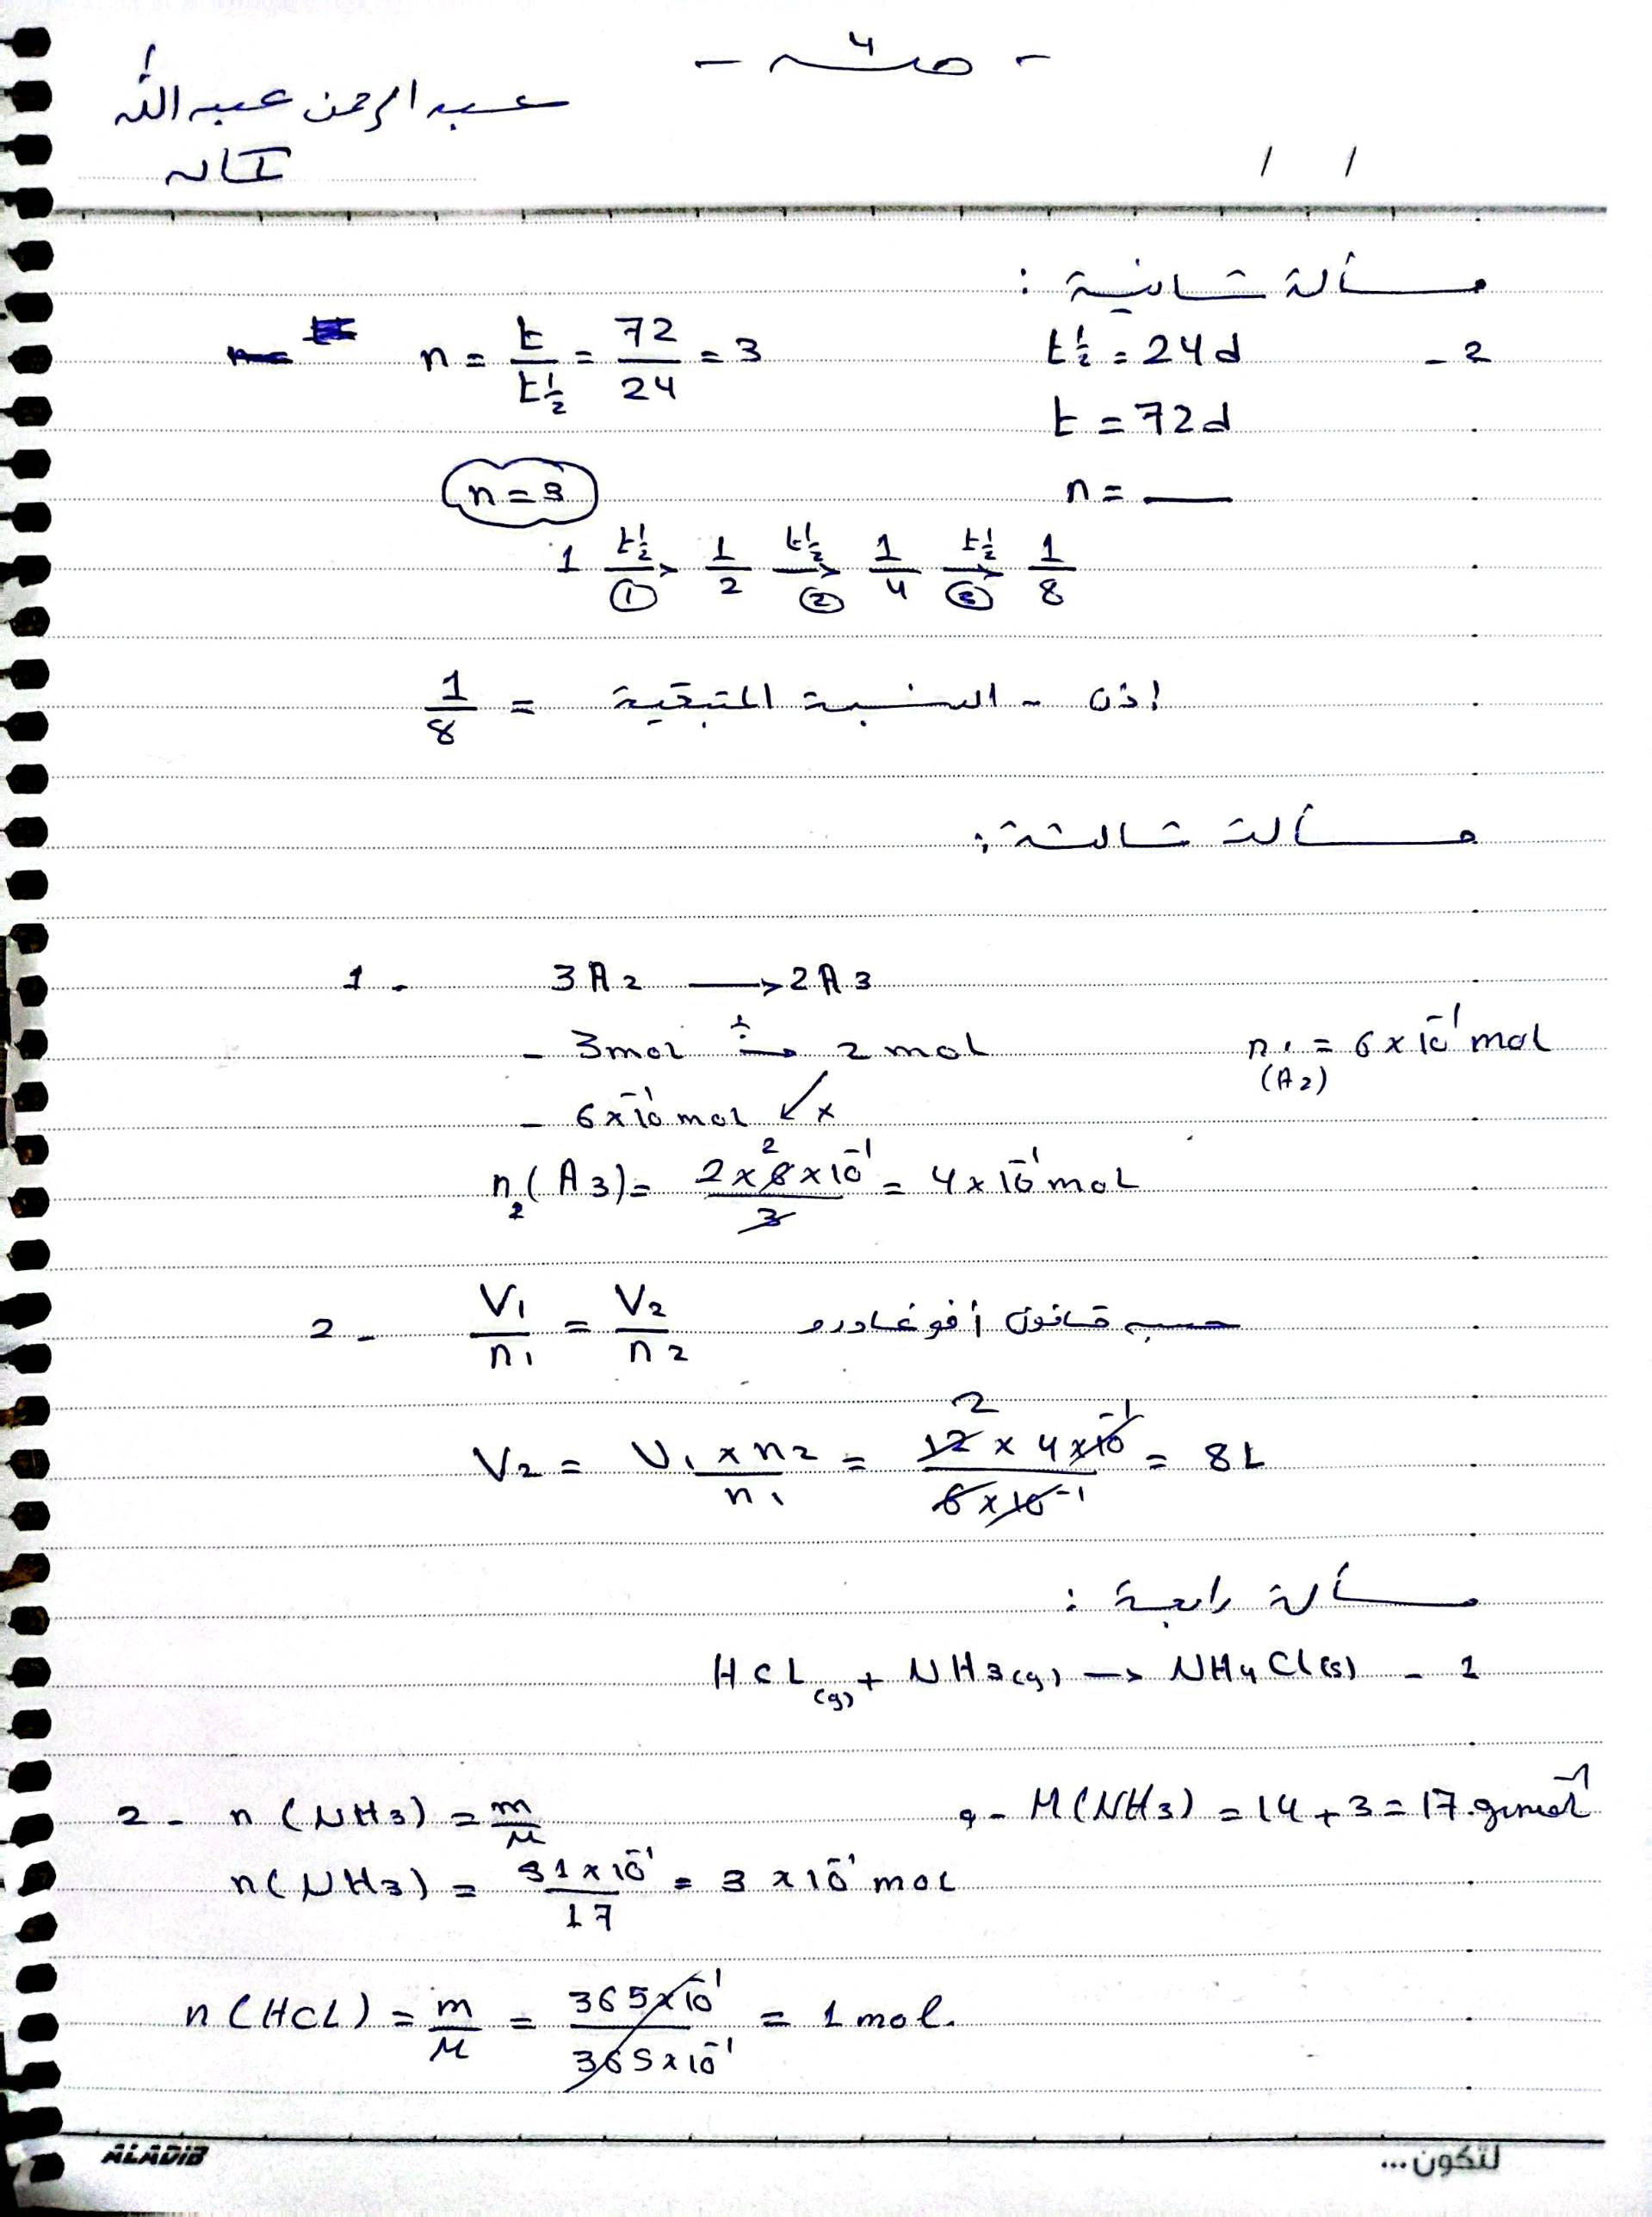 عبد الرحمن عبد الله
مسألة ثانية :
2 - t½ = 24 d
n = t/t½ = 72/24 = 3
t = 72 d
n = ___
n = 3
1 t½→ ① 1/2 t½→ ② 1/4 t½→ ③ 1/8
إذن - النسبة المتبقية = 1/8
مسألة ثالثة :
1 - 3A2 → 2A3
- 3 mol → 2 mol
n1 (A2) = 6 × 10⁻¹ mol
- 6 × 10⁻¹ mol x
n2 (A3) = 2 × 6 × 10⁻¹ / 3 = 4 × 10⁻¹ mol
2 - V1/n1 = V2/n2 حسب قانون أفوغادرو
V2 = V1 × n2 / n1 = 12 × 4 × 10⁻¹ / 6 × 10⁻¹ = 8 L
مسألة رابعة :
HCL(g) + NH3(g) → NH4Cl(s) - 1
2 - n (NH3) = m/M
M(NH3) = 14 + 3 = 17 g.mol⁻¹
n(NH3) = 51 × 10⁻¹ / 17 = 3 × 10⁻¹ mol
n (HCL) = m/M = 365 × 10⁻¹ / 365 × 10⁻¹ = 1 mol.
ALADIB
لتكون...